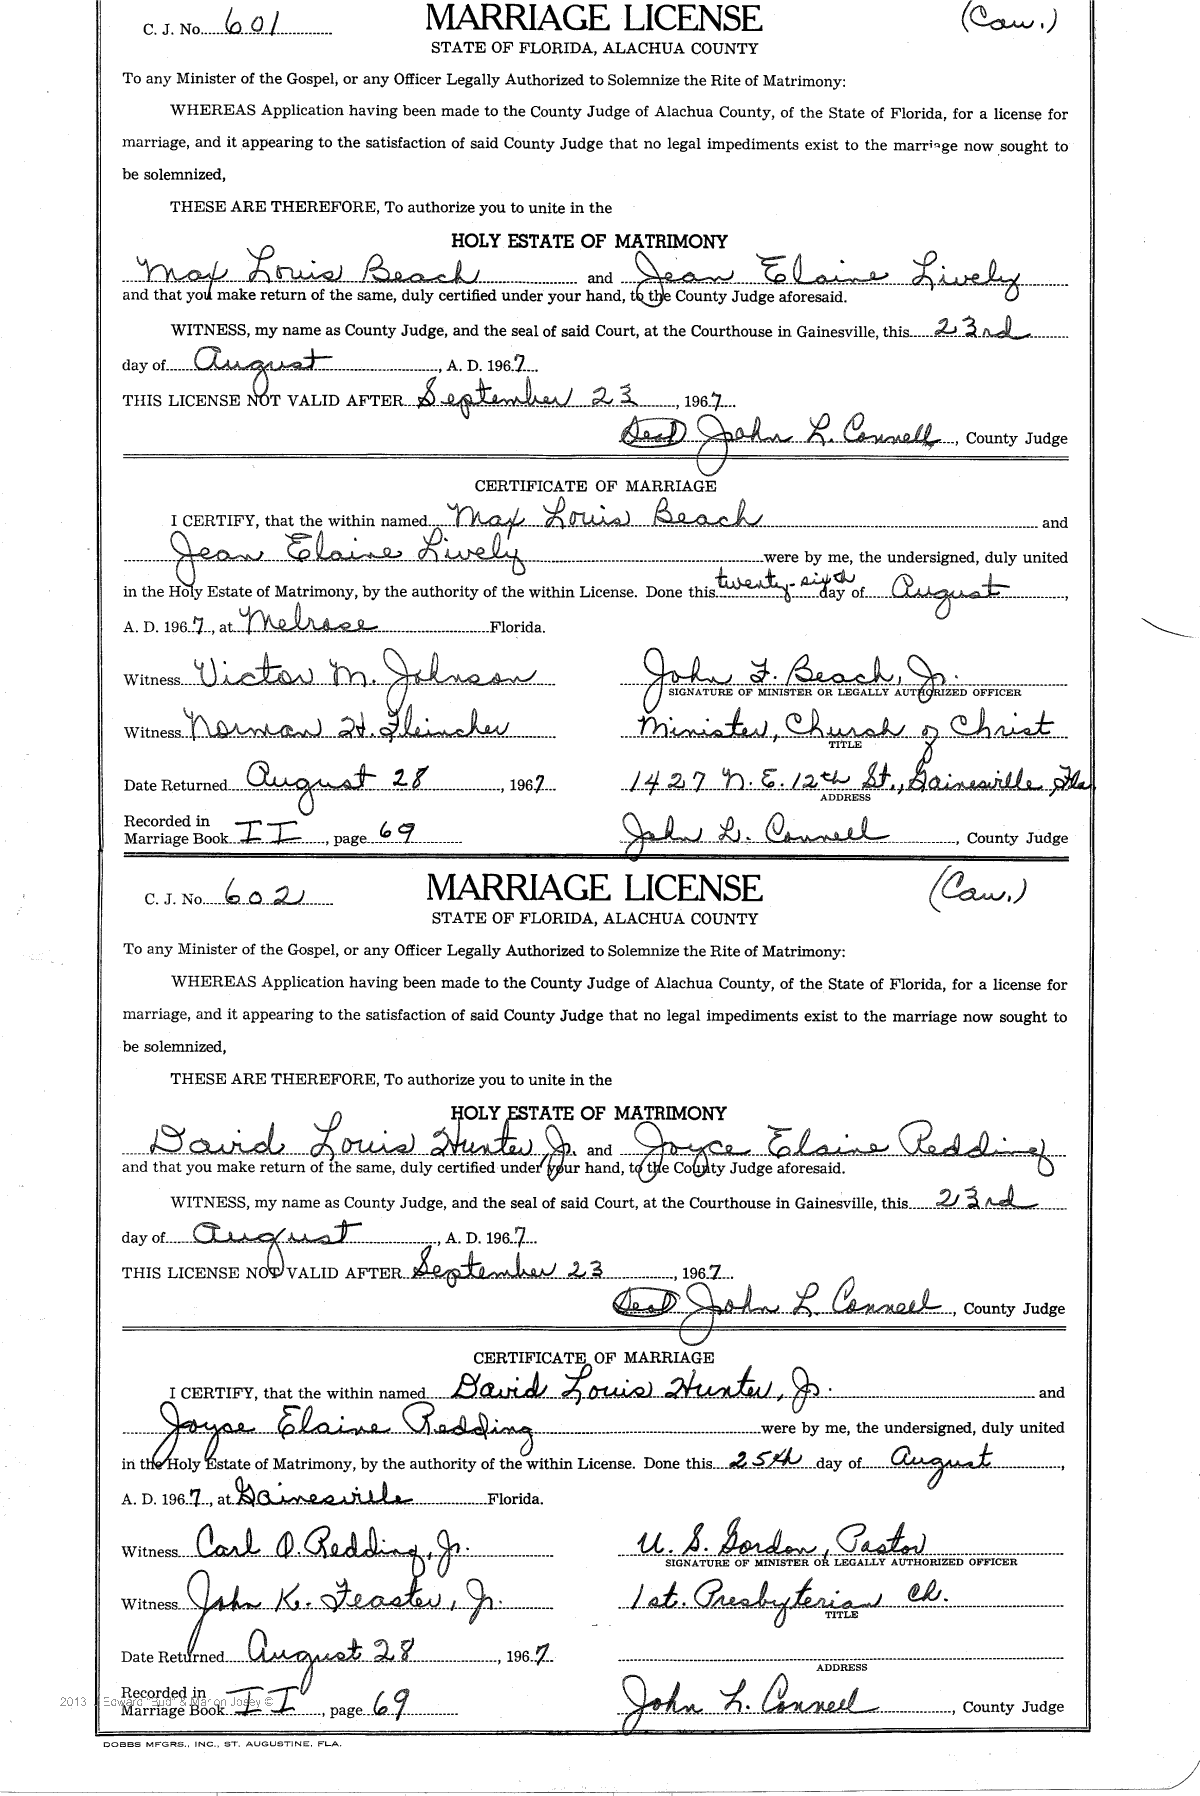 C. J. No. 601 MARRIAGE LICENSE (Cau.)
STATE OF FLORIDA, ALACHUA COUNTY
To any Minister of the Gospel, or any Officer Legally Authorized to Solemnize the Rite of Matrimony:
WHEREAS Application having been made to the County Judge of Alachua County, of the State of Florida, for a license for
marriage, and it appearing to the satisfaction of said County Judge that no legal impediments exist to the marriage now sought to
be solemnized,
THESE ARE THEREFORE, To authorize you to unite in the
HOLY ESTATE OF MATRIMONY
Max Louis Beach and Jean Elaine Lively
and that you make return of the same, duly certified under your hand, to the County Judge aforesaid.
WITNESS, my name as County Judge, and the seal of said Court, at the Courthouse in Gainesville, this 23rd
day of August, A. D. 1967
THIS LICENSE NOT VALID AFTER September 23, 1967
Seal John L. Connell, County Judge
CERTIFICATE OF MARRIAGE
I CERTIFY, that the within named Max Louis Beach and
Jean Elaine Lively were by me, the undersigned, duly united
in the Holy Estate of Matrimony, by the authority of the within License. Done this twenty-sixth day of August,
A. D. 1967, at Melrose Florida.
Witness Victor M. Johnson John F. Beach, Jr.
SIGNATURE OF MINISTER OR LEGALLY AUTHORIZED OFFICER
Witness Norman H. Minister, Church of Christ
TITLE
Date Returned August 28, 1967 1427 N. E. 12th St., Gainesville, Fla
ADDRESS
Recorded in
Marriage Book II, page 69 John L. Connell, County Judge
C. J. No. 602 MARRIAGE LICENSE (Cau.)
STATE OF FLORIDA, ALACHUA COUNTY
To any Minister of the Gospel, or any Officer Legally Authorized to Solemnize the Rite of Matrimony:
WHEREAS Application having been made to the County Judge of Alachua County, of the State of Florida, for a license for
marriage, and it appearing to the satisfaction of said County Judge that no legal impediments exist to the marriage now sought to
be solemnized,
THESE ARE THEREFORE, To authorize you to unite in the
HOLY ESTATE OF MATRIMONY
David Louis Hunter, Jr. and Joyce Elaine Redding
and that you make return of the same, duly certified under your hand, to the County Judge aforesaid.
WITNESS, my name as County Judge, and the seal of said Court, at the Courthouse in Gainesville, this 23rd
day of August, A. D. 1967
THIS LICENSE NOT VALID AFTER September 23, 1967
Seal John L. Connell, County Judge
CERTIFICATE OF MARRIAGE
I CERTIFY, that the within named David Louis Hunter, Jr. and
Joyce Elaine Redding were by me, the undersigned, duly united
in the Holy Estate of Matrimony, by the authority of the within License. Done this 25th day of August,
A. D. 1967, at Gainesville Florida.
Witness Carl O. Redding, Jr. U. S. Gordon, Pastor
SIGNATURE OF MINISTER OR LEGALLY AUTHORIZED OFFICER
Witness John K. Feaster, Jr. 1st. Presbyterian Ch.
TITLE
Date Returned August 28, 1967
ADDRESS
2013 Edward "Bud" & Marion Josey ©
Recorded in
Marriage Book II, page 69 John L. Connell, County Judge
DOBBS MFGRS., INC., ST. AUGUSTINE, FLA.